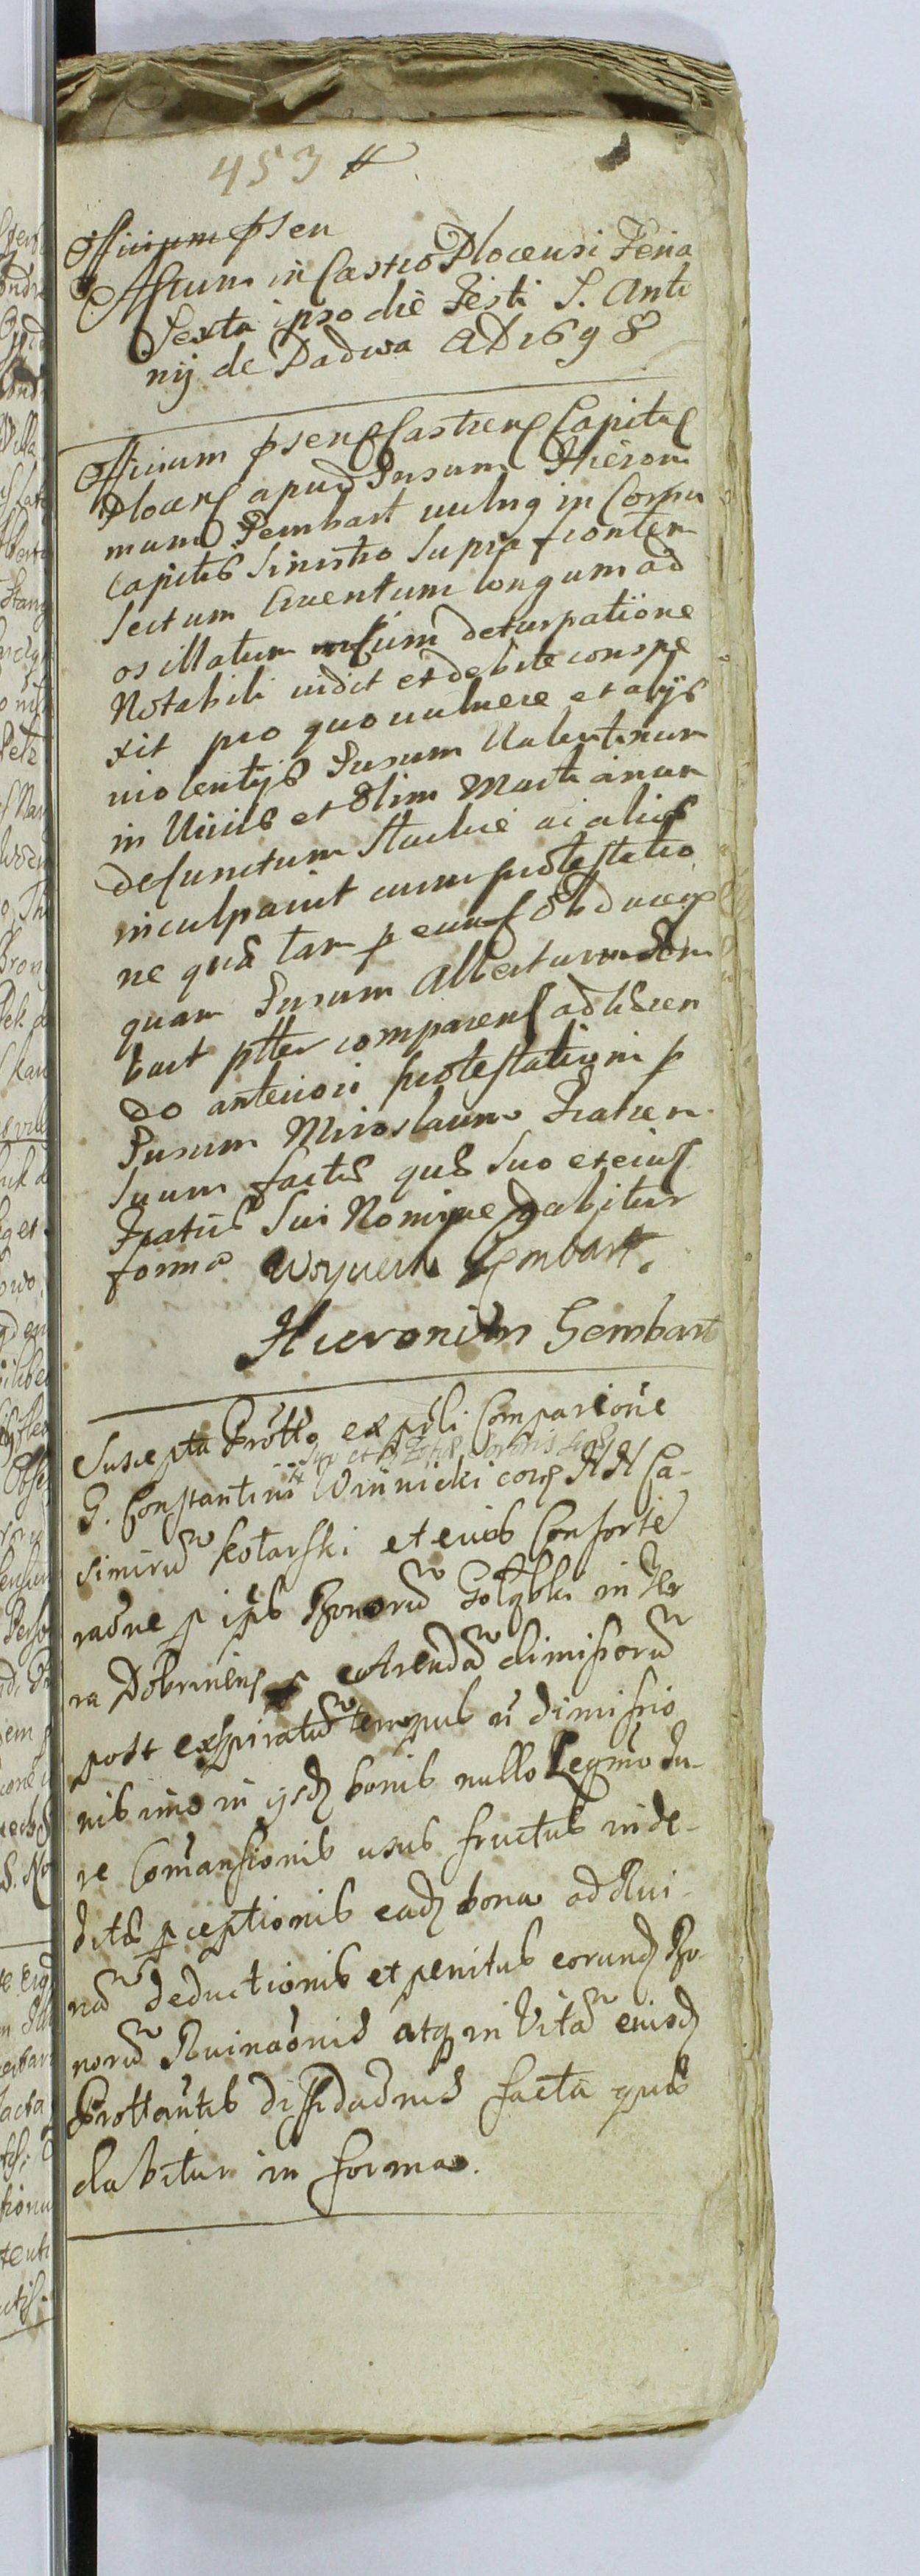 453
Officium psen
Actum in Castro Plocensi Feria
Sexta ipso die Festi S. Anto
nij de Padwa AD 1698
Officium psens Castrens Capitle
Plocens apud Pnsum Hieroni
mum Sembart uulnq in Cornu
Capitis Sinistro supra frontem
sectum Cruentum longum ad
os illatum cum deturpatione
Notabili uidit et debite conspe
xit pro quo uulnere et alijs
uiolentijs Pnsum Ualentinum
in Uiuis et Olim Martianum
defunctum Stachie ac alios
inculpauit cum protestatio
ne qua tam p eund Obducen
quam Pnsum Albertum Sem
bart ptter comparens adhaeren
do anteriori protestationi p
Pnsum Miroslaum Fratrem
suum factis quae suo et eius
Fratris sui Nomine dabitur
forma Woyciech Sembart
Hieronim Sembart
Suscepta Prottо ex psli Comparicione
G. Constantini Winnicki cora NN Ca-
simiru Kotarski et euis Consorte
raone p ipos Bonoru Gołąbki in Ter
ra Dobrinens Arenda dimissoru
post exspiratu tempus ñ dimissio
nis imo in ysd bonis nullo Legmo Ju-
re Comansionis usus fructus inde-
bitae pceptionis ead bona ad Rui-
na deductionis et penitus eorund Bo-
noru Ruinaonis atq in Vita eiusd
Prottantis diffidaonis facta quae
dabitur in forma.